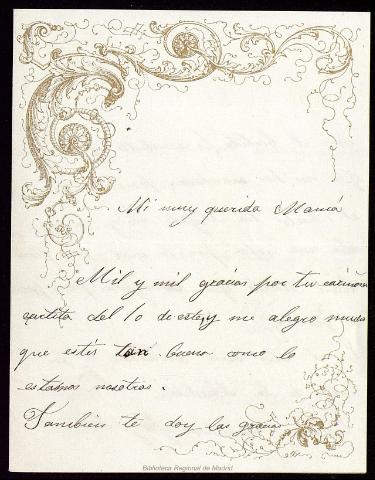 Mi muy querida Mamá
Mil y mil gracias por tu cariñosa
cartita del 10 de este y me alegro mucho
que estés tan buena como lo
estamos nosotros.
Tambien te doy las gracias
Biblioteca Regional de Madrid